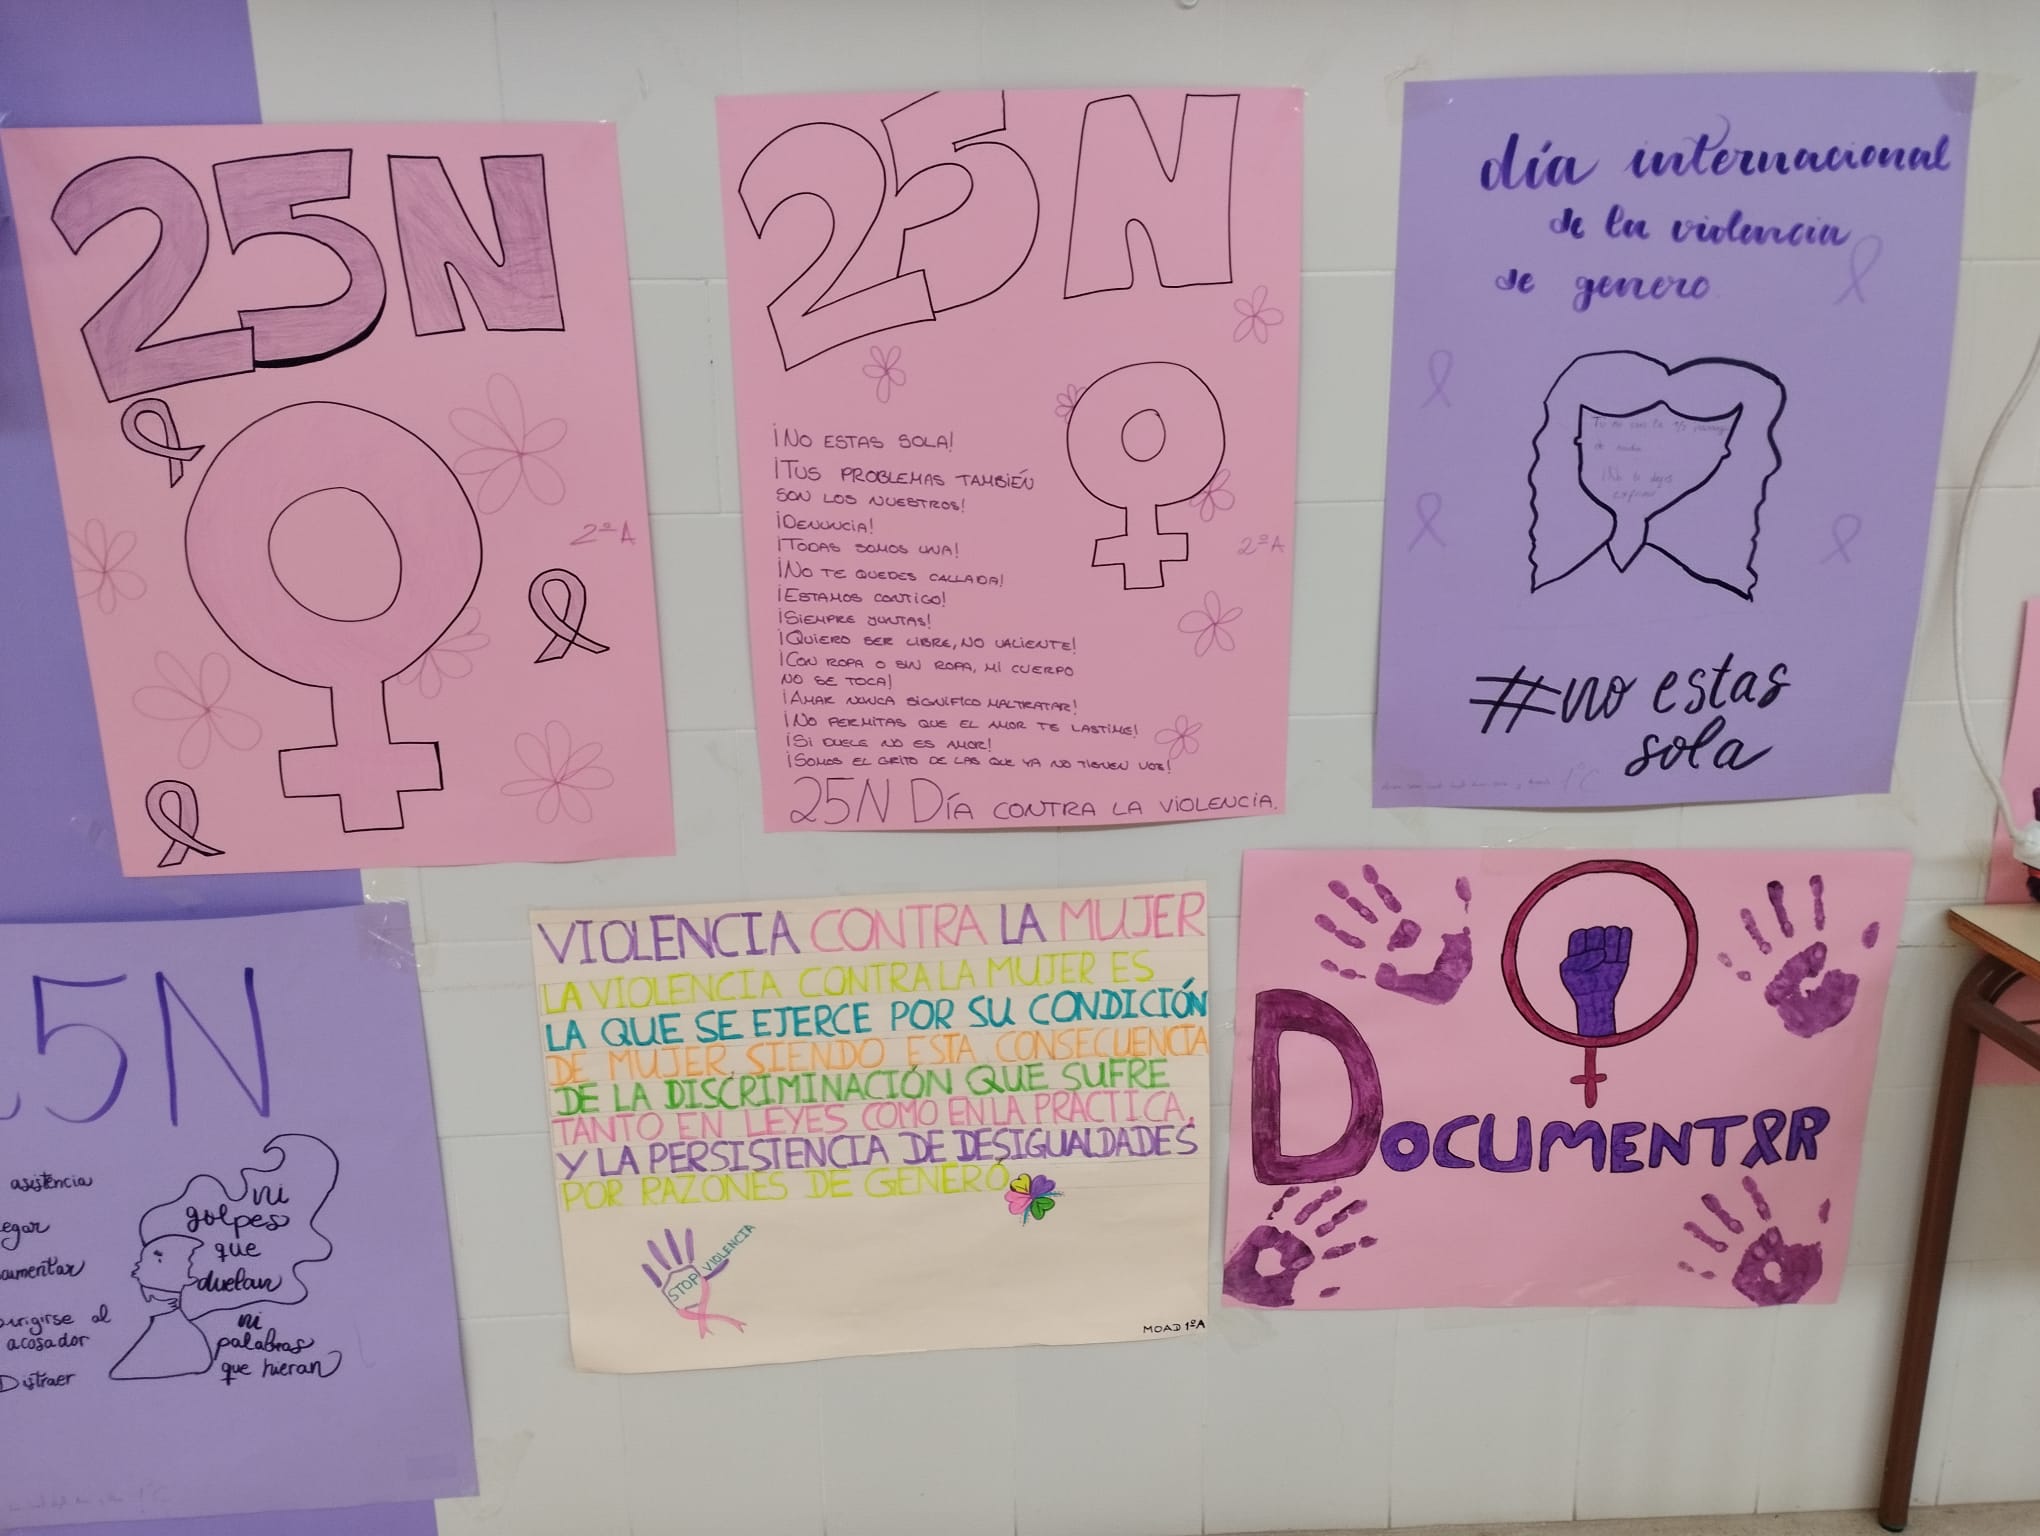 25N
2ºA
25N
¡NO ESTAS SOLA!
¡TUS PROBLEMAS TAMBIÉN
SON LOS NUESTROS!
¡DENUNCIA!
¡TODAS SOMOS UNA!
¡NO TE QUEDES CALLADA!
¡ESTAMOS CONTIGO!
¡SIEMPRE JUNTAS!
¡QUIERO SER LIBRE, NO VALIENTE!
¡CON ROPA O SIN ROPA, MI CUERPO
NO SE TOCA!
¡AMAR NUNCA SIGNIFICO MALTRATAR!
¡NO PERMITAS QUE EL AMOR TE LASTIME!
¡SI DUELE NO ES AMOR!
¡SOMOS EL GRITO DE LAS QUE YA NO TIENEN VOZ!
25N DÍA CONTRA LA VIOLENCIA.
2ºA
día internacional
de la violencia
de genero
¡No te dejes
#no estas
sola
1ºC
5N
asistencia
egar
umentar
irigirse al
acosador
Distraer
ni
golpes
que
duelan
ni
palabras
que hieran
VIOLENCIA CONTRA LA MUJER
LA VIOLENCIA CONTRA LA MUJER ES
LA QUE SE EJERCE POR SU CONDICIÓN
DE MUJER, SIENDO ESTA CONSECUENCIA
DE LA DISCRIMINACIÓN QUE SUFRE
TANTO EN LEYES COMO EN LA PRACTICA,
Y LA PERSISTENCIA DE DESIGUALDADES
POR RAZONES DE GENERO
STOP VIOLENCIA
MOAD 1ºA
DOCUMENTAR